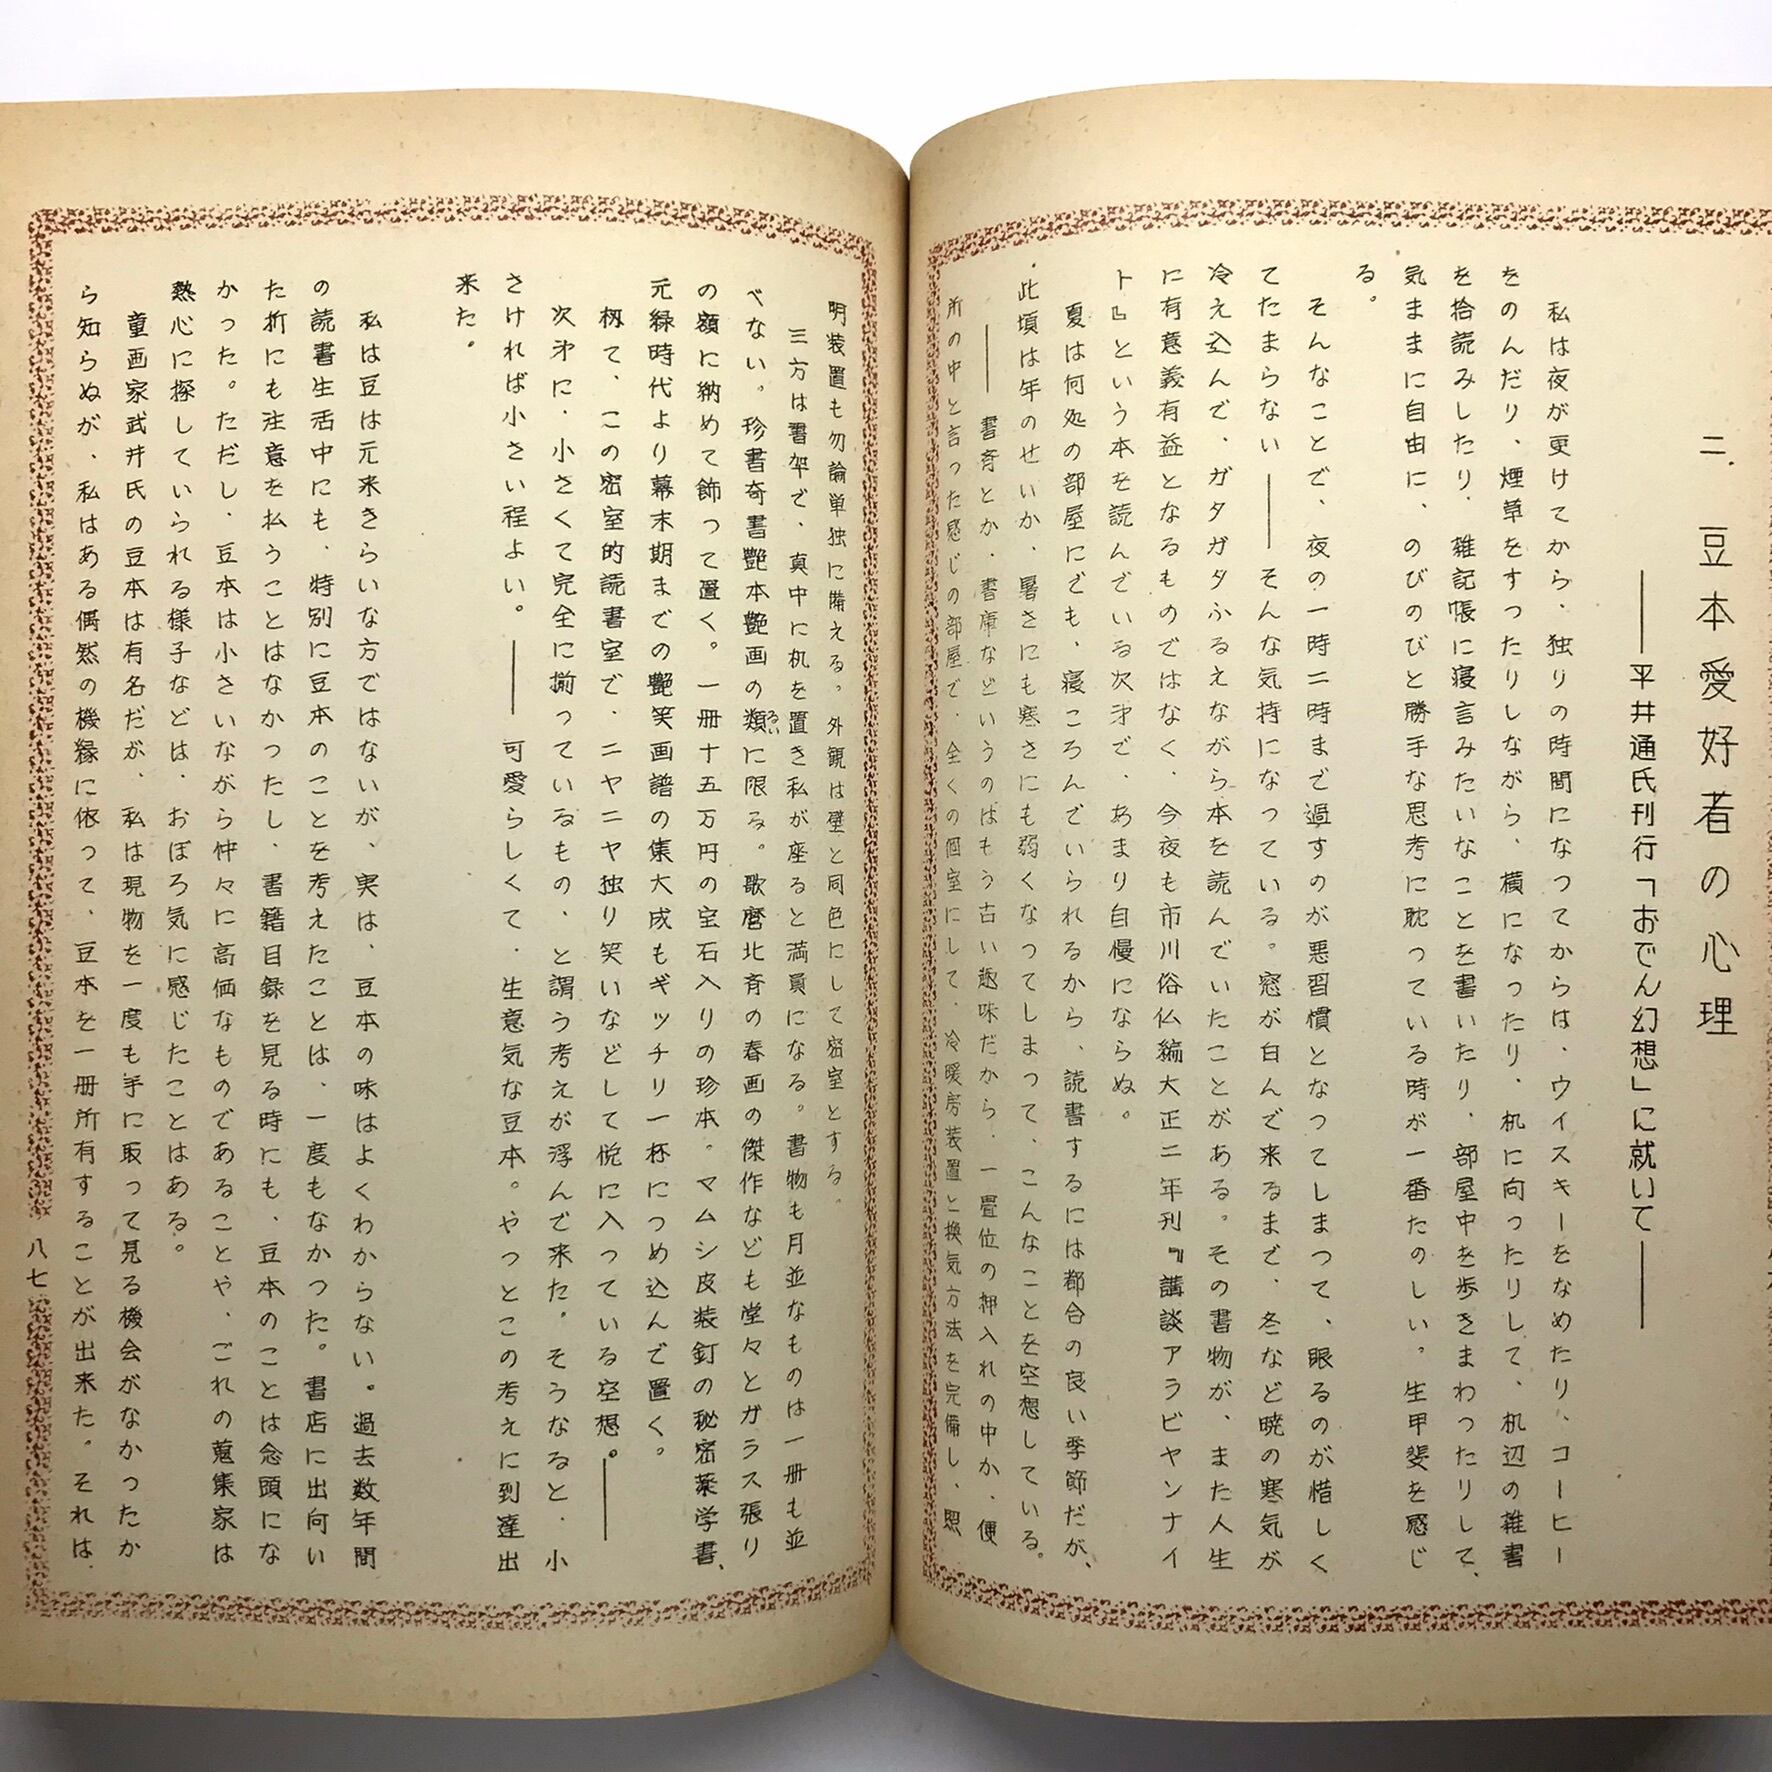 二、豆本愛好者の心理
――平井通氏刊行「おでん幻想」に就いて――
私は夜が更けてから、独りの時間になってからは、ウイスキーをなめたり、コーヒー
をのんだり、煙草をすったりしながら、横になったり、机に向ったりして、机辺の雑書
を拾読みしたり、雑記帳に寝言みたいなことを書いたり、部屋中を歩きまわったりして、
気ままに自由に、のびのびと勝手な思考に耽っている時が一番たのしい。生甲斐を感じ
る。
そんなことで、夜の一時二時まで過すのが悪習慣となってしまって、眠るのが惜しく
てたまらない――そんな気持になっている。窓が白んで来るまで、冬など暁の寒気が
冷え込んで、ガタガタふるえながら本を読んでいたことがある。その書物が、また人生
に有意義有益となるものではなく、今夜も市川俗仏編大正二年刊『講談アラビヤンナイ
ト』という本を読んでいる次第で、あまり自慢にならぬ。
夏は何処の部屋にでも、寝ころんでいられるから、読書するには都合の良い季節だが、
此頃は年のせいか、暑さにも寒さにも弱くなってしまって、こんなことを空想している。
――書斉とか、書庫などいうのはもう古い趣味だから、一畳位の押入れの中か、便
所の中と言った感じの部屋で、全くの個室にして、冷暖房装置と換気方法を完備し、照
明装置も勿論単独に備える。外観は壁と同色にして密室とする。
三方は書架で、真中に机を置き私が座ると満員になる。書物も月並なものは一冊も並
べない。珍書奇書艶本艶画の類に限る。歌麿北斉の春画の傑作なども堂々とガラス張り
の額に納めて飾って置く。一冊十五万円の宝石入りの珍本。マムシ皮装釘の秘密薬学書、
元緑時代より幕末期までの艶笑画譜の集大成もギッチリ一杯につめ込んで置く。
扨て、この密室的読書室で、ニヤニヤ独り笑いなどして悦に入っている空想。――
次第に、小さくて完全に揃っているもの、と謂う考えが浮んで来た。そうなると、小
さければ小さい程よい。――可愛らしくて、生意気な豆本。やっとこの考えに到達出
来た。
私は豆は元来きらいな方ではないが、実は、豆本の味はよくわからない。過去数年間
の読書生活中にも、特別に豆本のことを考えたことは、一度もなかった。書店に出向い
た折にも注意を払うことはなかったし、書籍目録を見る時にも、豆本のことは念頭にな
かった。ただし、豆本は小さいながら仲々に高価なものであることや、これの蒐集家は
熱心に探していられる様子などは、おぼろ気に感じたことはある。
童画家武井氏の豆本は有名だが、私は現物を一度も手に取って見る機会がなかったか
ら知らぬが、私はある偶然の機縁に依って、豆本を一冊所有することが出来た。それは、
八七